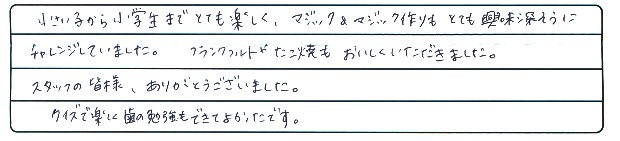 小さい子から小学生までとても楽しく、マジック&マジック作りもとても興味深そうに
チャレンジしていました。 フランクフルトやたこ焼もおいしくいただきました。
スタッフの皆様、ありがとうございました。
クイズで楽しく歯の勉強もできてよかったです。